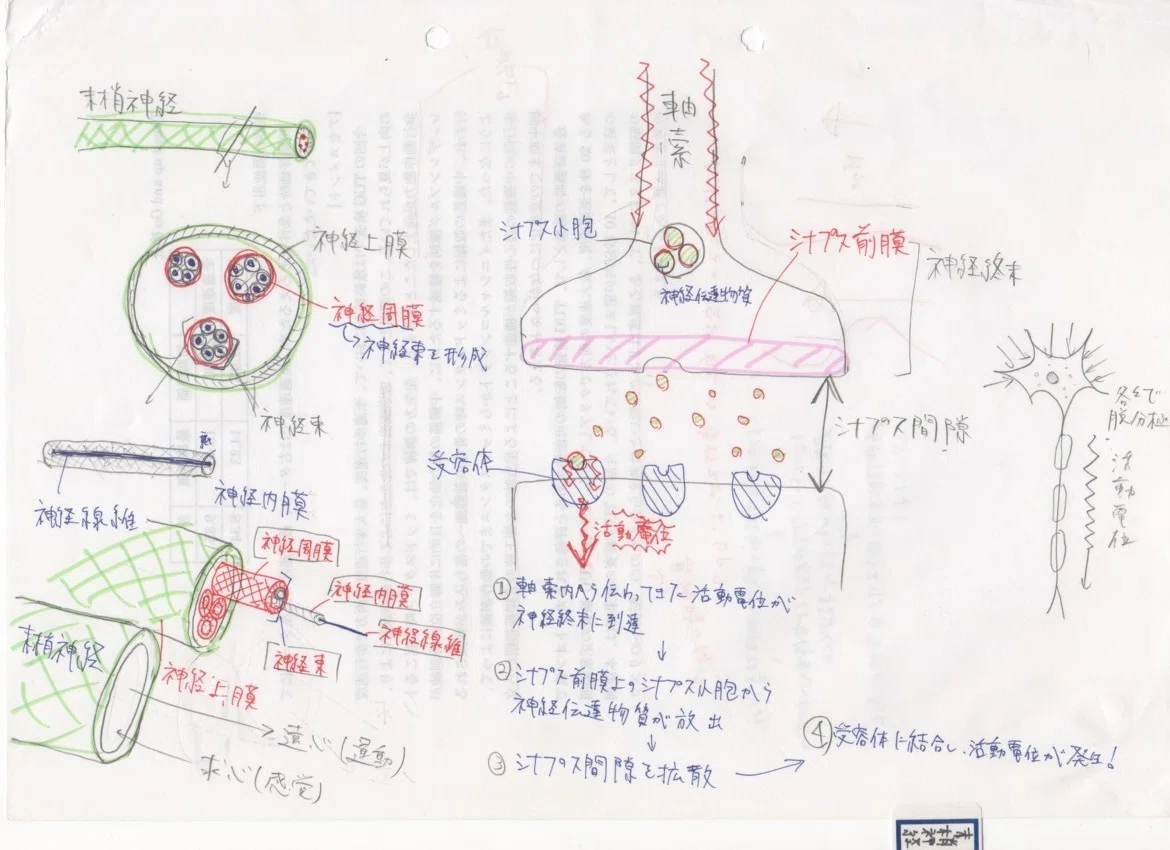 末梢神経
神経上膜
神経周膜
↳神経束を形成
神経束
神経線維
神経内膜
神経周膜
神経内膜
神経線維
神経束
末梢神経
神経上膜
遠心(運動)
求心(感覚)
軸索
シナプス小胞
神経伝達物質
シナプス前膜
神経終末
シナプス間隙
受容体
活動電位
①軸索内から伝わってきた活動電位が
神経終末に到達
↓
②シナプス前膜上のシナプス小胞から
神経伝達物質が放出
↓
③シナプス間隙を拡散
④受容体に結合し、活動電位が発生!
脱分極
活動電位
末梢神経